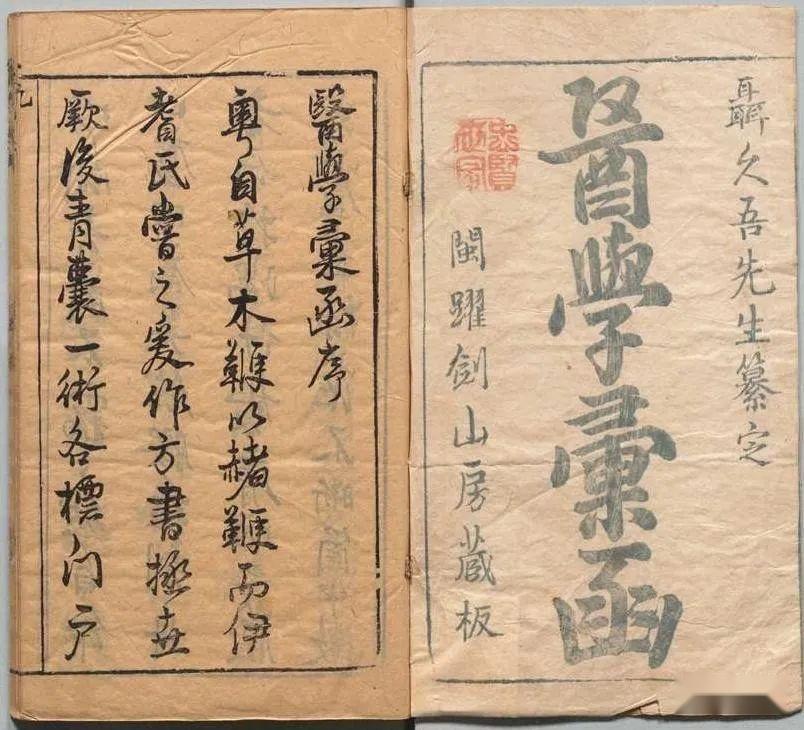 聶久吾先生纂定
醫學彙函
閩躍劍山房藏板
醫學彙函序
粵自草木鞭以赭鞭而伊
耆氏嘗之爰作方書拯世
厥後青囊一術各標门戶